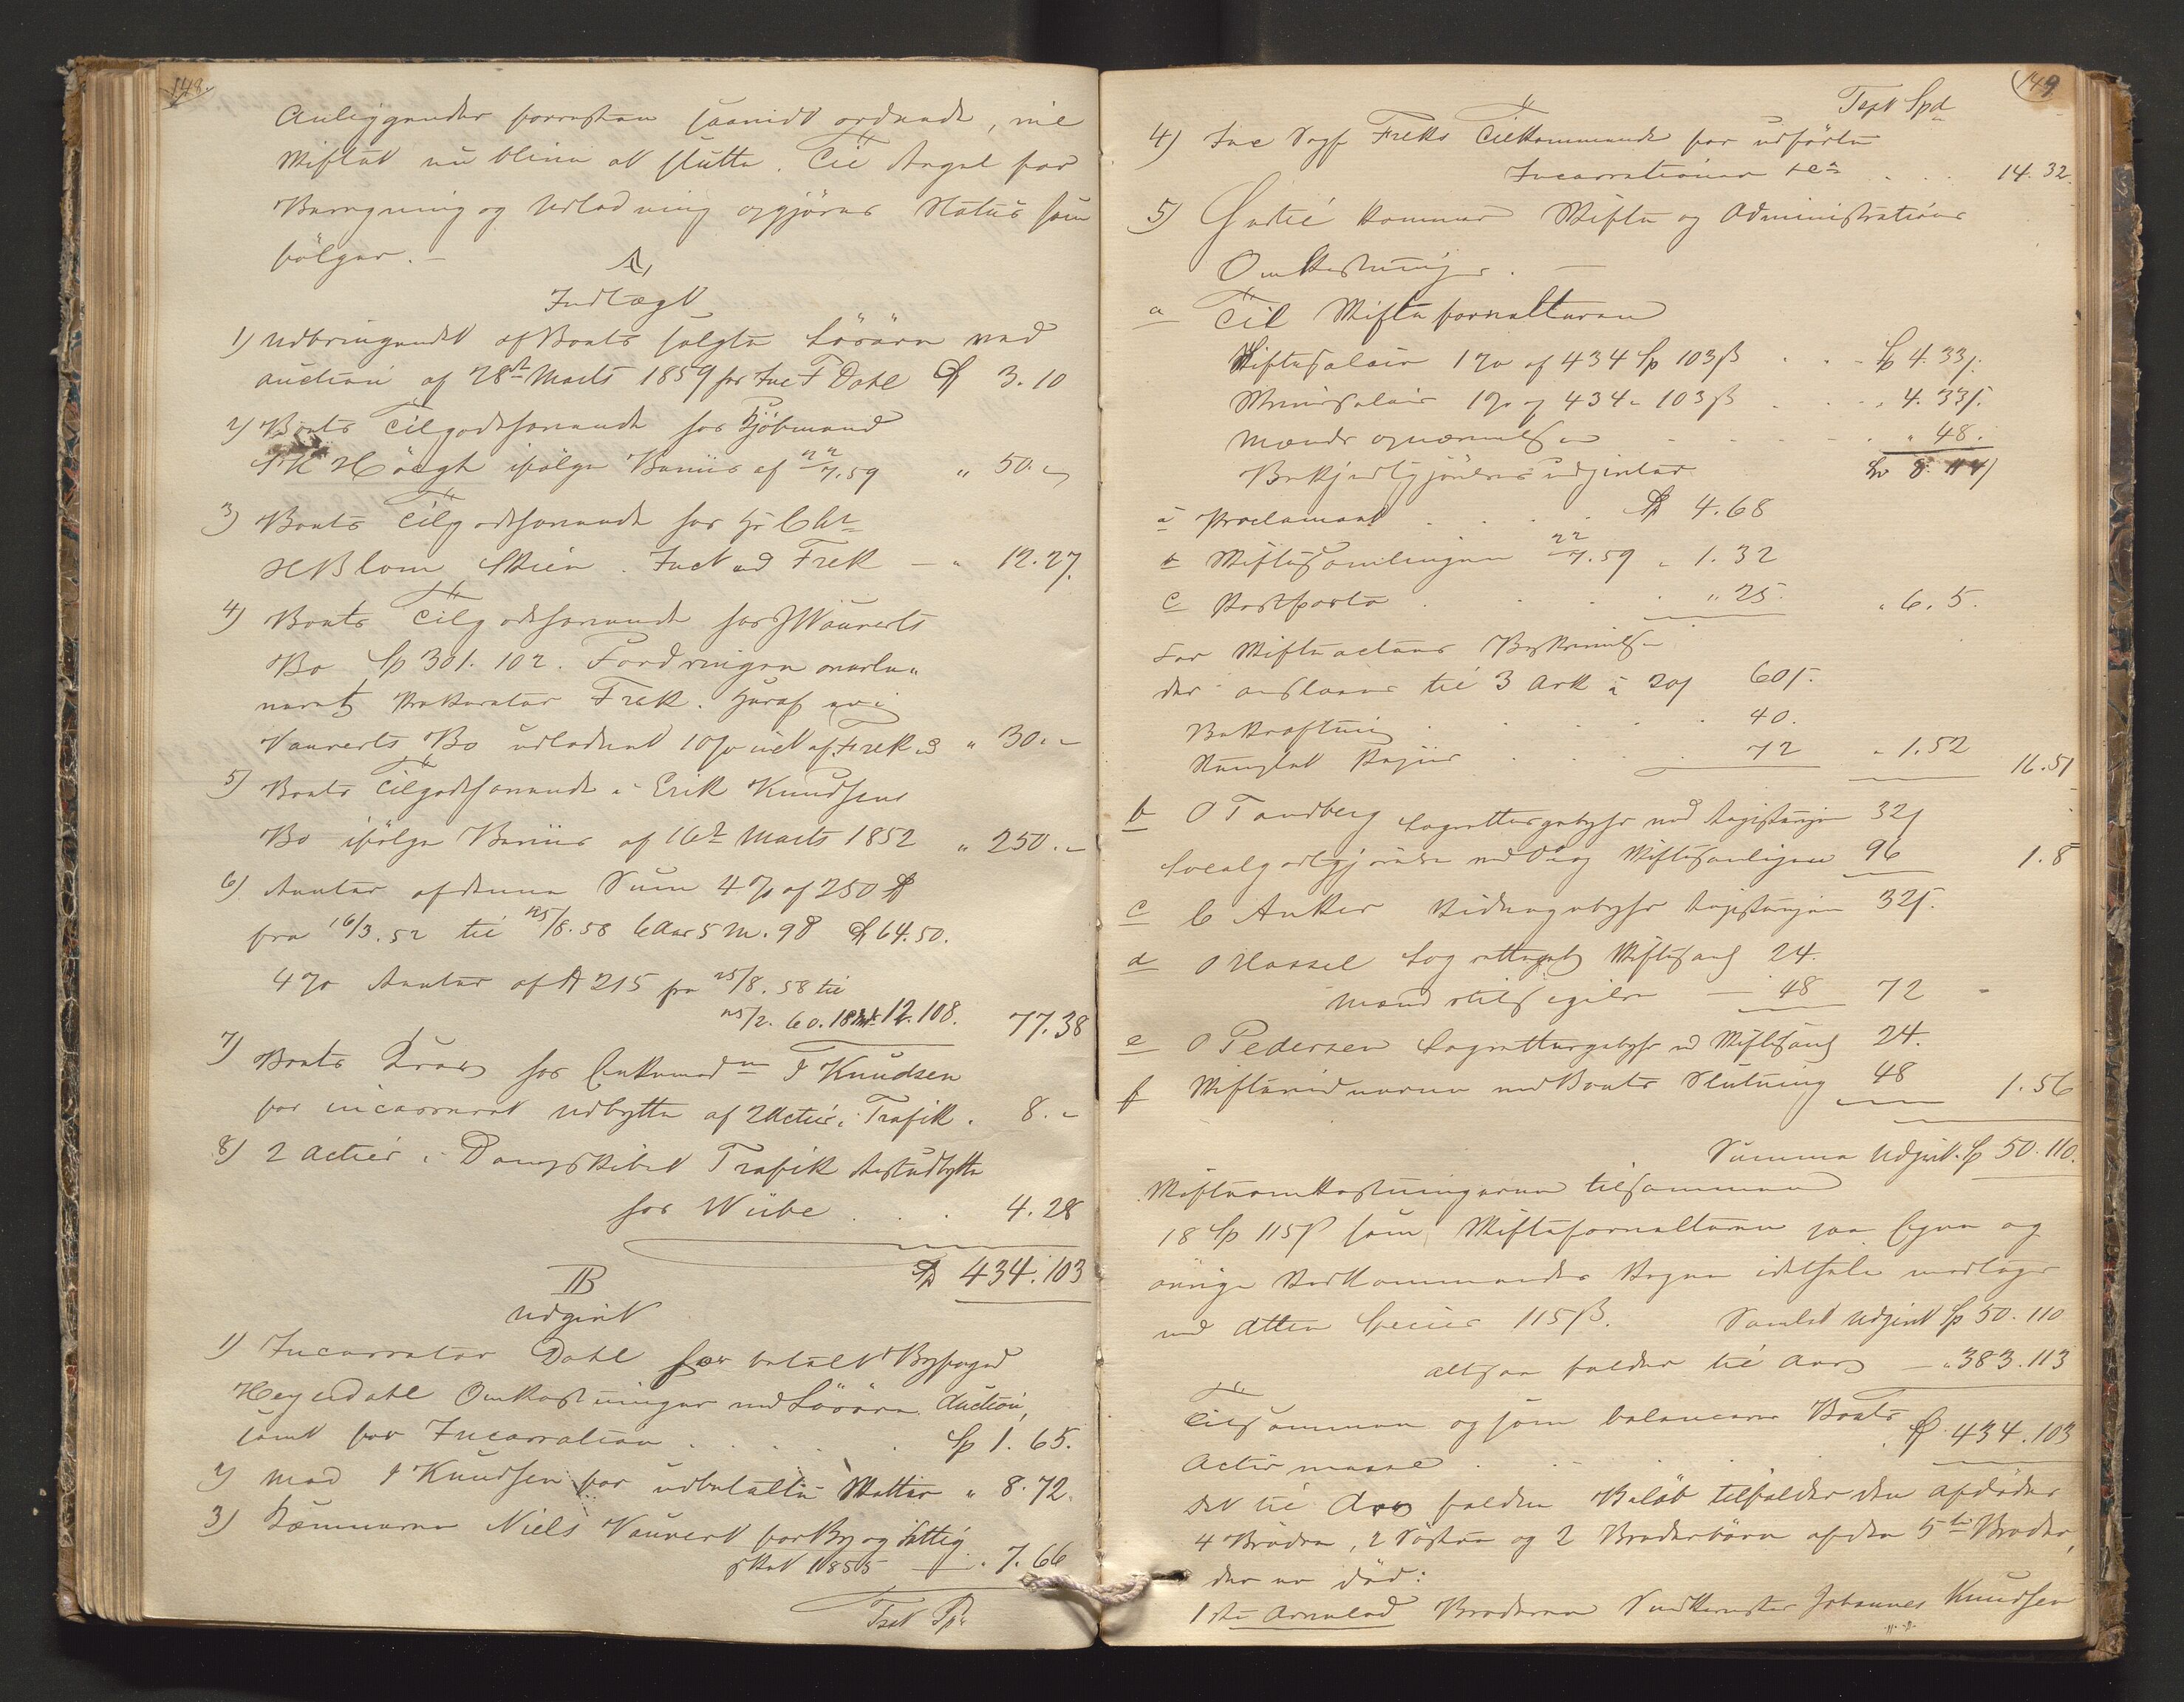 148.
Anliggender forresten saavidt ordnede, vil
Skiftet nu blive at slutte. Til Regel for
Beregning og Udlodning opgjøres Status som
følger. –
A,
Indtægt
1) Udbringendet af Boets solgte Løsøre ved
auction af 28de Marts 1859 hos Inc F Dahl Spd 3. 10
2) Boets Tilgodehavende hos Kjøbmand
Høegh ifølge Beviis af 22/7. 59 " 50. "
3) Boets Tilgodehavende hos
H Blom Skien. Inct ved Frek – " 12. 27.
4) Boets Tilgodehavende hos Wauverts
Bo Sp 301. 102. Fordringen overle-
veret Prokurator Frek. Heraf er i
Vauverts Bo udloddet 10% ind af Frek " 30. "
5) Boets Tilgodehavende i Erik Knudsens
Bo ifølge Beviis af 16de Marts 1852 " 250. "
6) Renter af denne Sum 4% af 250 Spd
fra 16/3. 52 til 25/8. 58 6 Aar 5 M. 9 D Spd 64. 50.
4% Renter af Spd 215 fra 25/8. 58 til
25/2. 60. 18 12. 108. 77. 38
7) Boets Krav hos Enkemadm J Knudsen
for incasseret Udbytte af 2 Actier i Trafik. 8. "
8) 2 Actier i Dampskibet Trafik Restudbytte
hos Wiibe . . . 4. 28
Spd 434. 103
B
Udgivt
1) Incassator Dahl har betalt Byfoged
Heyerdahl Omkostninger ved Løsøre Auction,
samt for Incassation . . . . Sp 1. 65.
2) Mad J Knudsen for udbetalte Skatter " 8. 72.
3) Kæmneren Niels Vauvert for By og Fattig
skat 1855 – " 7. 66
Tspt Sp

149
Tspt Spd
4) Inc Sagf Freks Tilkommende for udførte
Incassationer . . . 14. 32.
5) Hertil kommer Skifte og Administrations
Omkostninger. –
a Til Skifteforvalteren
Skiftesalair 1% af 434 Sp 103 ß . . Sp 4. 33 ß.
Skriversalair 1% af 434 " 103 ß . . " 4. 33 ß.
Mænds opnævnelse . . . " 48.
Bekjendtgjørelses udgivter
a Proclamaet . . . Spd 4. 68
b Skiftesamlingen 22/7. 59 " 1. 32
c Postporto . . . " 25. " 6. 5.
For Skifteactens Beskrivelse
der ansloaes til 3 Ark à 20 ß 60 ß.
Bekræftning . . . 40.
Stemplet Papiir . . . 72 " 1. 52 16. 51
b O Tandberg Laugrettesgebyhr ved Registringen 32 ß
Localgodtgjørelse ved D: og Skiftesamlingen 96 1. 8
c C Anker Vidnegebyhr Registringen 32 ß.
d O Hassel Lagrettegeb Skiftesaml 24.
Mænd – 48 72
e O Pedersen Lagrettesgebyhr ved Skiftesaml 24.
f Skiftevidnerne ved Boets Slutning 48 1. 56
Summa Udgivt. Sp 50. 110.
Skifteomkostningerne tilsammen
18 Sp 115 ß som Skifteforvalteren paa Egne og
øvrige Vedkommendes Vegne idethele modtager
med atten Specier 115 ß. Samlet Udgivt Sp 50. 110
altsaa falder til Arv – " 383. 113
Tilsammen og som balancerer Boets
Activ masse . . . Spd 434. 103
Det til Arv faldne Beløb tilfalder den afdødes
4 Brødre, 2 Søstre og 2 Broderbørn af den 5te Broder,
der er død:
1ste Arvelod Broderen Snedkermester Johannes Knudsen